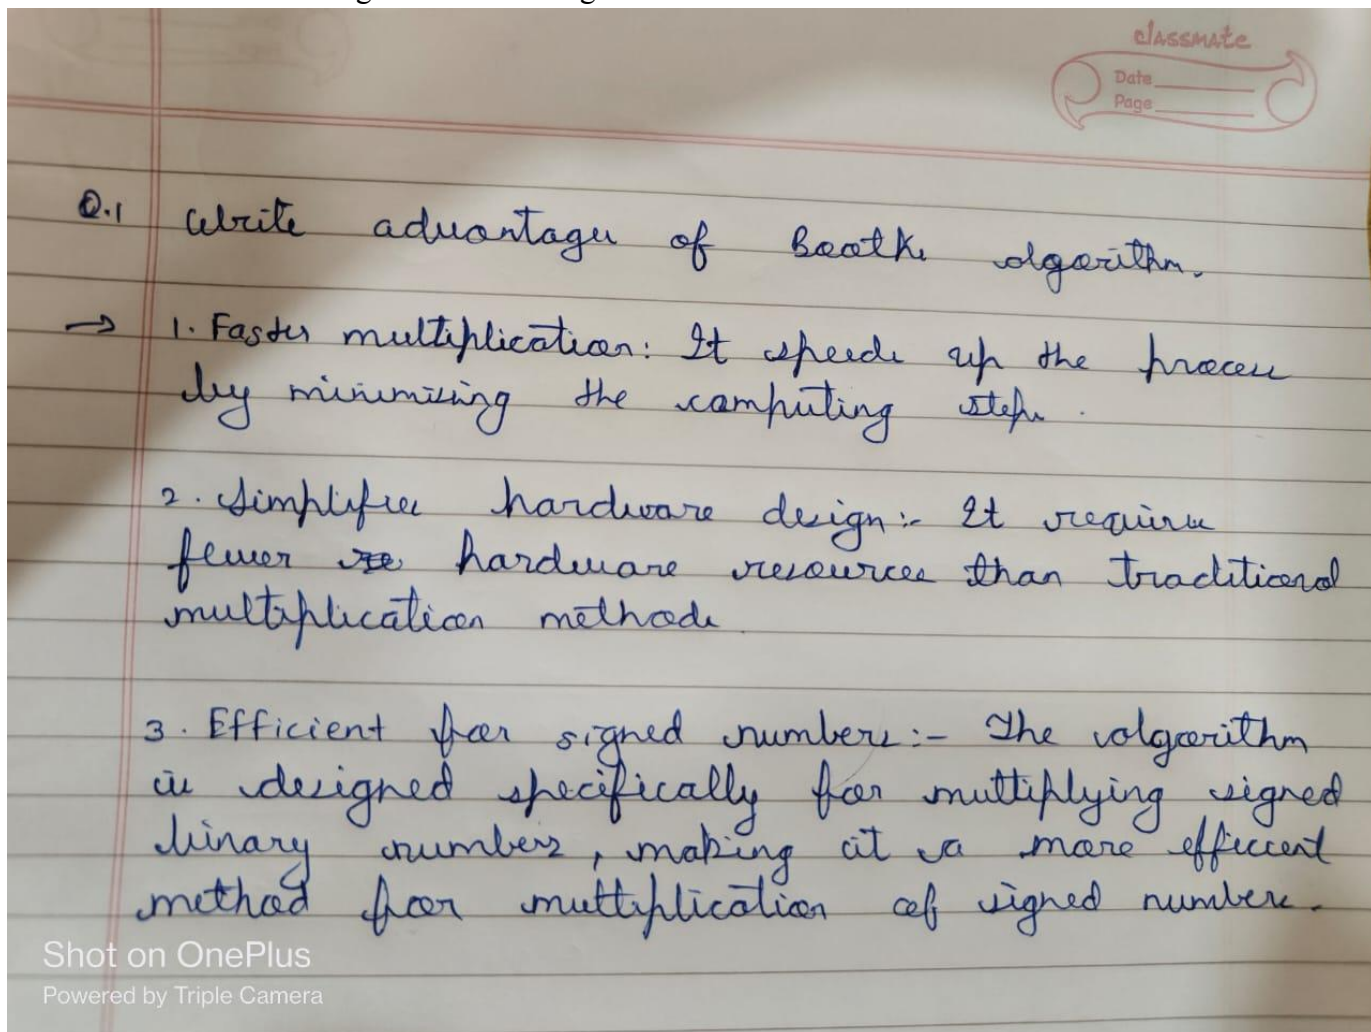 classmate
Date
Page
Q.1 Write advantages of Booth's algorithm.
→ 1. Faster multiplication: It speeds up the process
by minimizing the computing steps.
2. Simplifies hardware design:- It requires
fewer hardware resources than traditional
multiplication methods
3. Efficient for signed numbers:- The algorithm
is designed specifically for multiplying signed
binary numbers, making it a more efficient
method for multiplication of signed numbers.
Shot on OnePlus
Powered by Triple Camera